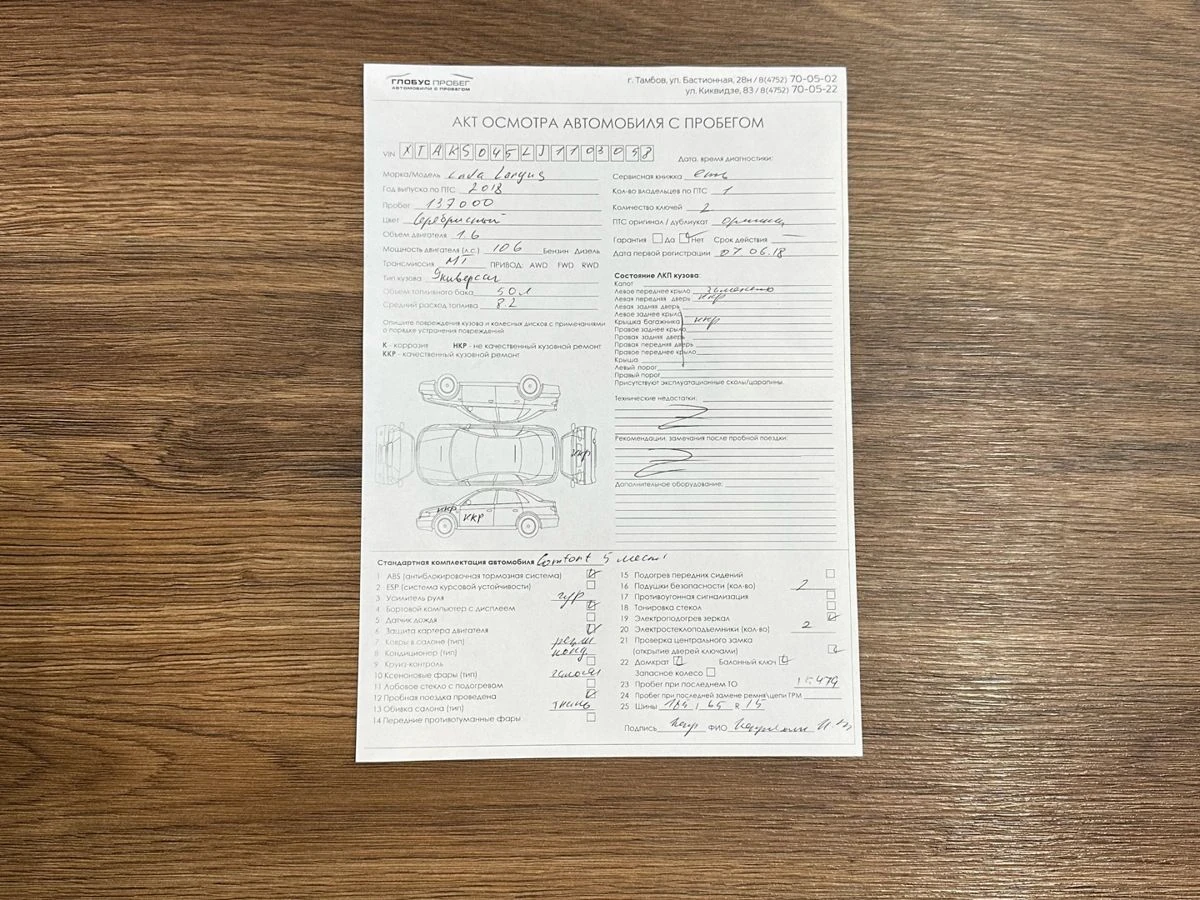 ГЛОБУС ПРОБЕГ
АВТОМОБИЛИ С ПРОБЕГОМ
г. Тамбов, ул. Бастионная, 28н / 8(4752) 70-05-02
ул. Киквидзе, 83 / 8(4752) 70-05-22
АКТ ОСМОТРА АВТОМОБИЛЯ С ПРОБЕГОМ
VIN XTAKS045LJ1103058
Марка/Модель Lada Largus
Год выпуска по ПТС 2018
Пробег 137000
Цвет Серебристый
Объем двигателя 1.6
Мощность двигателя (л.с.) 106 Бензин Дизель
Трансмиссия МТ ПРИВОД: AWD FWD RWD
Тип кузова Универсал
Объем топливного бака 50 л
Средний расход топлива 8.2
Опишите повреждения кузова и колесных дисков с примечаниями
о порядке устранения повреждений
К - коррозия НКР - не качественный кузовной ремонт
ККР - качественный кузовной ремонт
ккр
ккр
ккр
Дата, время диагностики:
Сервисная книжка есть
Кол-во владельцев по ПТС 1
Количество ключей 2
ПТС оригинал / дубликат оригинал
Гарантия Да Нет Срок действия
Дата первой регистрации 07.06.18
Состояние ЛКП кузова:
Капот
Левое переднее крыло заменено
Левая передняя дверь ккр
Левая задняя дверь
Левое заднее крыло
Крышка багажника ккр
Правое заднее крыло
Правая задняя дверь
Правая передняя дверь
Правое переднее крыло
Крыша
Левый порог
Правый порог
Присутствуют эксплуатационные сколы/царапины.
Технические недостатки:
Рекомендации, замечания после пробной поездки:
Дополнительное оборудование:
Стандартная комплектация автомобиля Comfort 5 мест
1 ABS (антиблокировочная тормозная система)
2 ESP (система курсовой устойчивости)
3 Усилитель руля гур
4 Бортовой компьютер с дисплеем
5 Датчик дождя
6 Защита картера двигателя
7 Ковры в салоне (тип)
8 Кондиционер (тип) конд
9 Круиз-контроль
10 Ксеноновые фары (тип) галоген
11 Лобовое стекло с подогревом
12 Пробная поездка проведена
13 Обивка салона (тип) ткань
14 Передние противотуманные фары
15 Подогрев передних сидений
16 Подушки безопасности (кол-во) 2
17 Противоугонная сигнализация
18 Тонировка стекол
19 Электроподогрев зеркал
20 Электростеклоподъемники (кол-во) 2
21 Проверка центрального замка
(открытие дверей ключами)
22 Домкрат Балонный ключ
Запасное колесо
23 Пробег при последнем ТО
24 Пробег при последней замене ремня/цепи ГРМ
25 Шины 185 / 65 R 15
Подпись ФИО